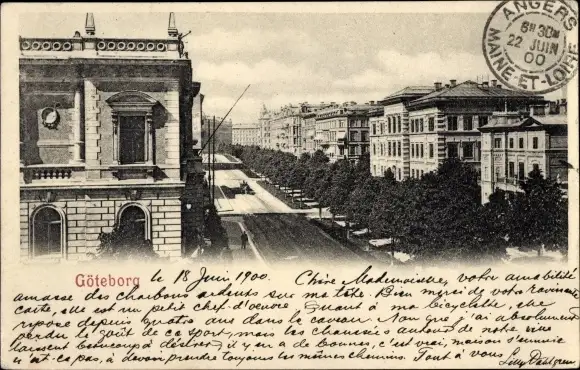 ANGERS
MAINE-ET-LOIRE
6H 30M
22 JUIN
00
Göteborg le 18 Juin 1900. Chère Mademoiselle, votre amabilité
amasse des charbons ardents sur ma tête. Bien merci de votre ravissante
carte, elle est un petit chef-d'œuvre. Quant à ma bicyclette, elle
repose depuis quatre ans dans le caveau. Non que j'ai absolument
perdre le goût de ce sport mais les chaussées autour de notre ville
laissent beaucoup à désirer, il y en a de bonnes, c'est vrai, mais on s'ennuie
n'est-ce pas, à devoir prendre toujours les mêmes chemins. Tout à vous Lilly